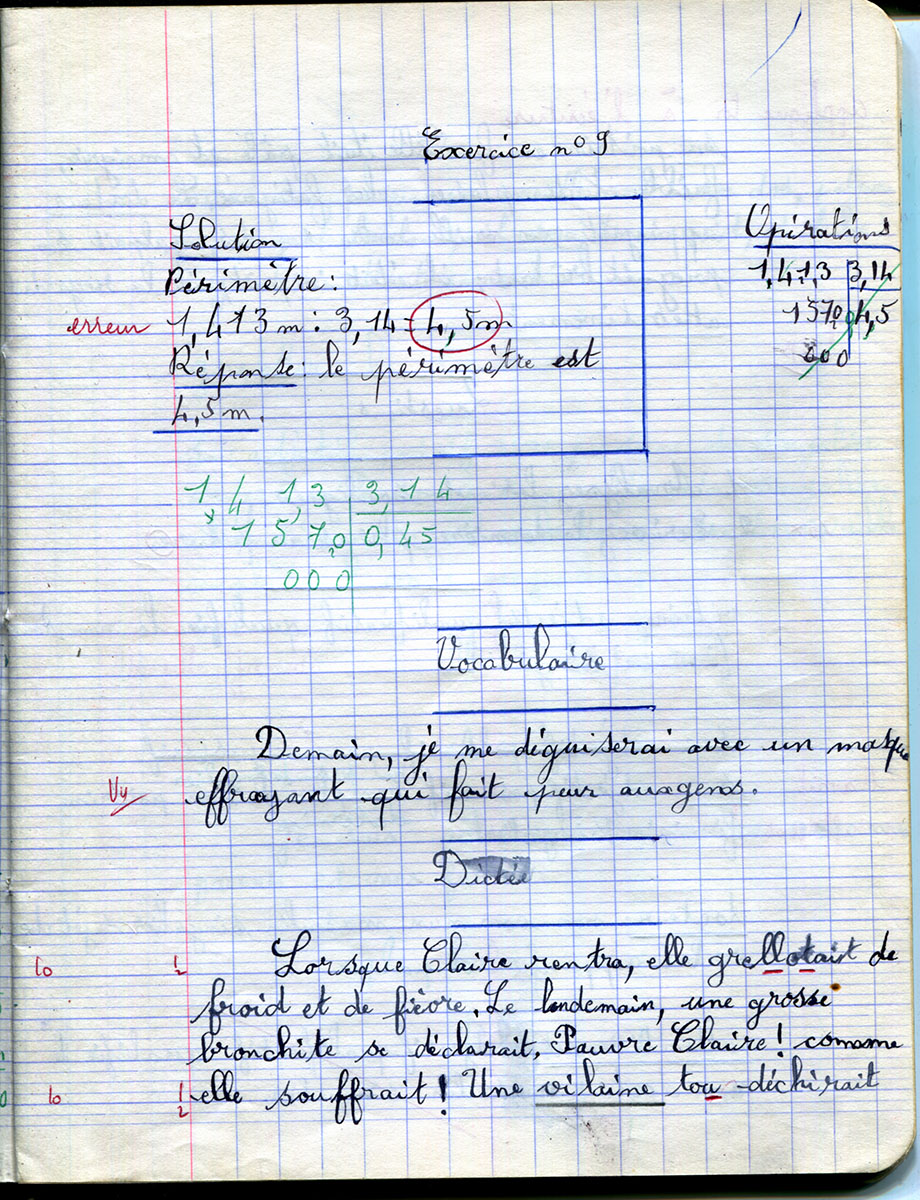 Exercice n° 9
Solution
Périmètre:
erreur 1,413 m : 3,14 = 4,5 m
Réponse: le périmètre est
4,5 m.
Opérations
1,413 3,14
1570 4,5
000
1 4 1,3 3,14
1 5 7,0 0,45
000
Vocabulaire
Demain, je me déguiserai avec un masque
Vu effrayant qui fait peur aux gens.
Dictée
Lorsque Claire rentra, elle grellotait de
froid et de fièvre. Le lendemain, une grosse
bronchite se déclarait. Pauvre Claire! comme
elle souffrait! Une vilaine tou déchirait